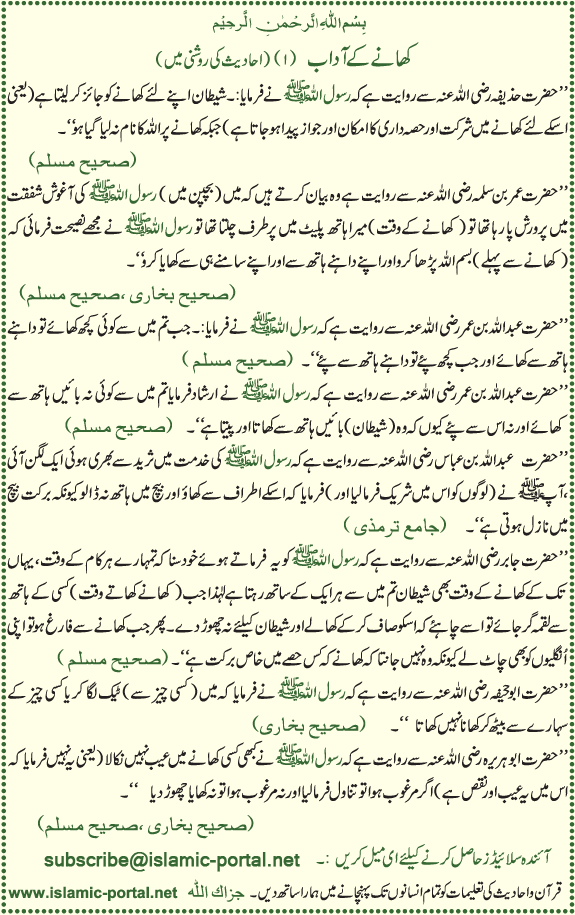 بِسْمِ اللهِ الرَّحْمٰنِ الرَّحِيْمِ
کھانے کے آداب (۱) (احادیث کی روشنی میں)
’’حضرت حذیفہ رضی اللہ عنہ سے روایت ہے کہ رسول اللہ ﷺ نے فرمایا:۔ شیطان اپنے لئے کھانے کو جائز کر لیتا ہے (یعنی
اسکے لئے کھانے میں شرکت اور حصہ داری کا امکان اور جواز پیدا ہو جاتا ہے) جبکہ کھانے پر اللہ کا نام نہ لیا گیا ہو‘‘۔
(صحیح مسلم)
’’حضرت عمر بن سلمہ رضی اللہ عنہ سے روایت ہے وہ بیان کرتے ہیں کہ میں (بچپن میں) رسول اللہ ﷺ کی آغوش شفقت
میں پرورش پا رہا تھا تو (کھانے کے وقت) میرا ہاتھ پلیٹ میں ہر طرف چلتا تھا تو رسول اللہ ﷺ نے مجھے نصیحت فرمائی کہ
(کھانے سے پہلے) بسم اللہ پڑھا کرو اور اپنے داہنے ہاتھ سے اور اپنے سامنے ہی سے کھایا کرو‘‘۔
(صحیح بخاری ،صحیح مسلم)
’’حضرت عبداللہ بن عمر رضی اللہ عنہ سے روایت ہے کہ رسول اللہ ﷺ نے فرمایا:۔ جب تم میں سے کوئی کچھ کھائے تو داہنے
ہاتھ سے کھائے اور جب کچھ پئے تو داہنے ہاتھ سے پئے‘‘۔ (صحیح مسلم)
’’حضرت عبداللہ بن عمر رضی اللہ عنہ سے روایت ہے کہ رسول اللہ ﷺ نے ارشاد فرمایا تم میں سے کوئی نہ بائیں ہاتھ سے
کھائے اور نہ اس سے پئے کیوں کہ وہ (شیطان) بائیں ہاتھ سے کھاتا اور پیتا ہے‘‘۔ (صحیح مسلم)
’’حضرت عبداللہ بن عباس رضی اللہ عنہ سے روایت ہے کہ رسول اللہ ﷺ کی خدمت میں ثرید سے بھری ہوئی ایک لگن آئی
،آپ ﷺ نے (لوگوں کو اس میں شریک فرما لیا اور) فرمایا کہ اسکے اطراف سے کھاؤ اور بیچ میں ہاتھ نہ ڈالو کیونکہ برکت بیچ
میں نازل ہوتی ہے‘‘۔ (جامع ترمذی)
’’حضرت جابر رضی اللہ عنہ سے روایت ہے کہ رسول اللہ ﷺ کو یہ فرماتے ہوئے خود سنا کہ تمہارے ہر کام کے وقت، یہاں
تک کے کھانے کے وقت بھی شیطان تم میں سے ہر ایک کے ساتھ رہتا ہے لہٰذا جب (کھانے کھاتے وقت) کسی کے ہاتھ
سے لقمہ گر جائے تو اسے چاہئے کہ اسکو صاف کر کے کھالے اور شیطان کیلئے نہ چھوڑ دے۔ پھر جب کھانے سے فارغ ہو تو اپنی
اُنگلیوں کو بھی چاٹ لے کیونکہ وہ نہیں جانتا کہ کھانے کہ کس حصے میں خاص برکت ہے‘‘۔ (صحیح مسلم)
’’حضرت ابو جحیفہ رضی اللہ عنہ سے روایت ہے کہ رسول اللہ ﷺ نے فرمایا کہ میں (کسی چیز سے) ٹیک لگا کر یا کسی چیز کے
سہارے سے بیٹھ کر کھانا نہیں کھاتا ‘‘۔ (صحیح بخاری)
’’حضرت ابو ہریرہ رضی اللہ عنہ سے روایت ہے کہ رسول اللہ ﷺ نے کبھی کسی کھانے میں عیب نہیں نکالا (یعنی یہ نہیں فرمایا کہ
اس میں یہ عیب اور نقص ہے) اگر مرغوب ہوا تو تناول فرما لیا اور نہ مرغوب ہوا تو نہ کھایا چھوڑ دیا ‘‘۔
(صحیح بخاری ،صحیح مسلم)
آئندہ سلائیڈز حاصل کرنے کیلئے ای میل کریں :۔ subscribe@islamic-portal.net
قرآن و احادیث کی تعلیمات کو تمام انسانوں تک پہنچانے میں ہمارا ساتھ دیں۔ جزاك الله www.islamic-portal.net